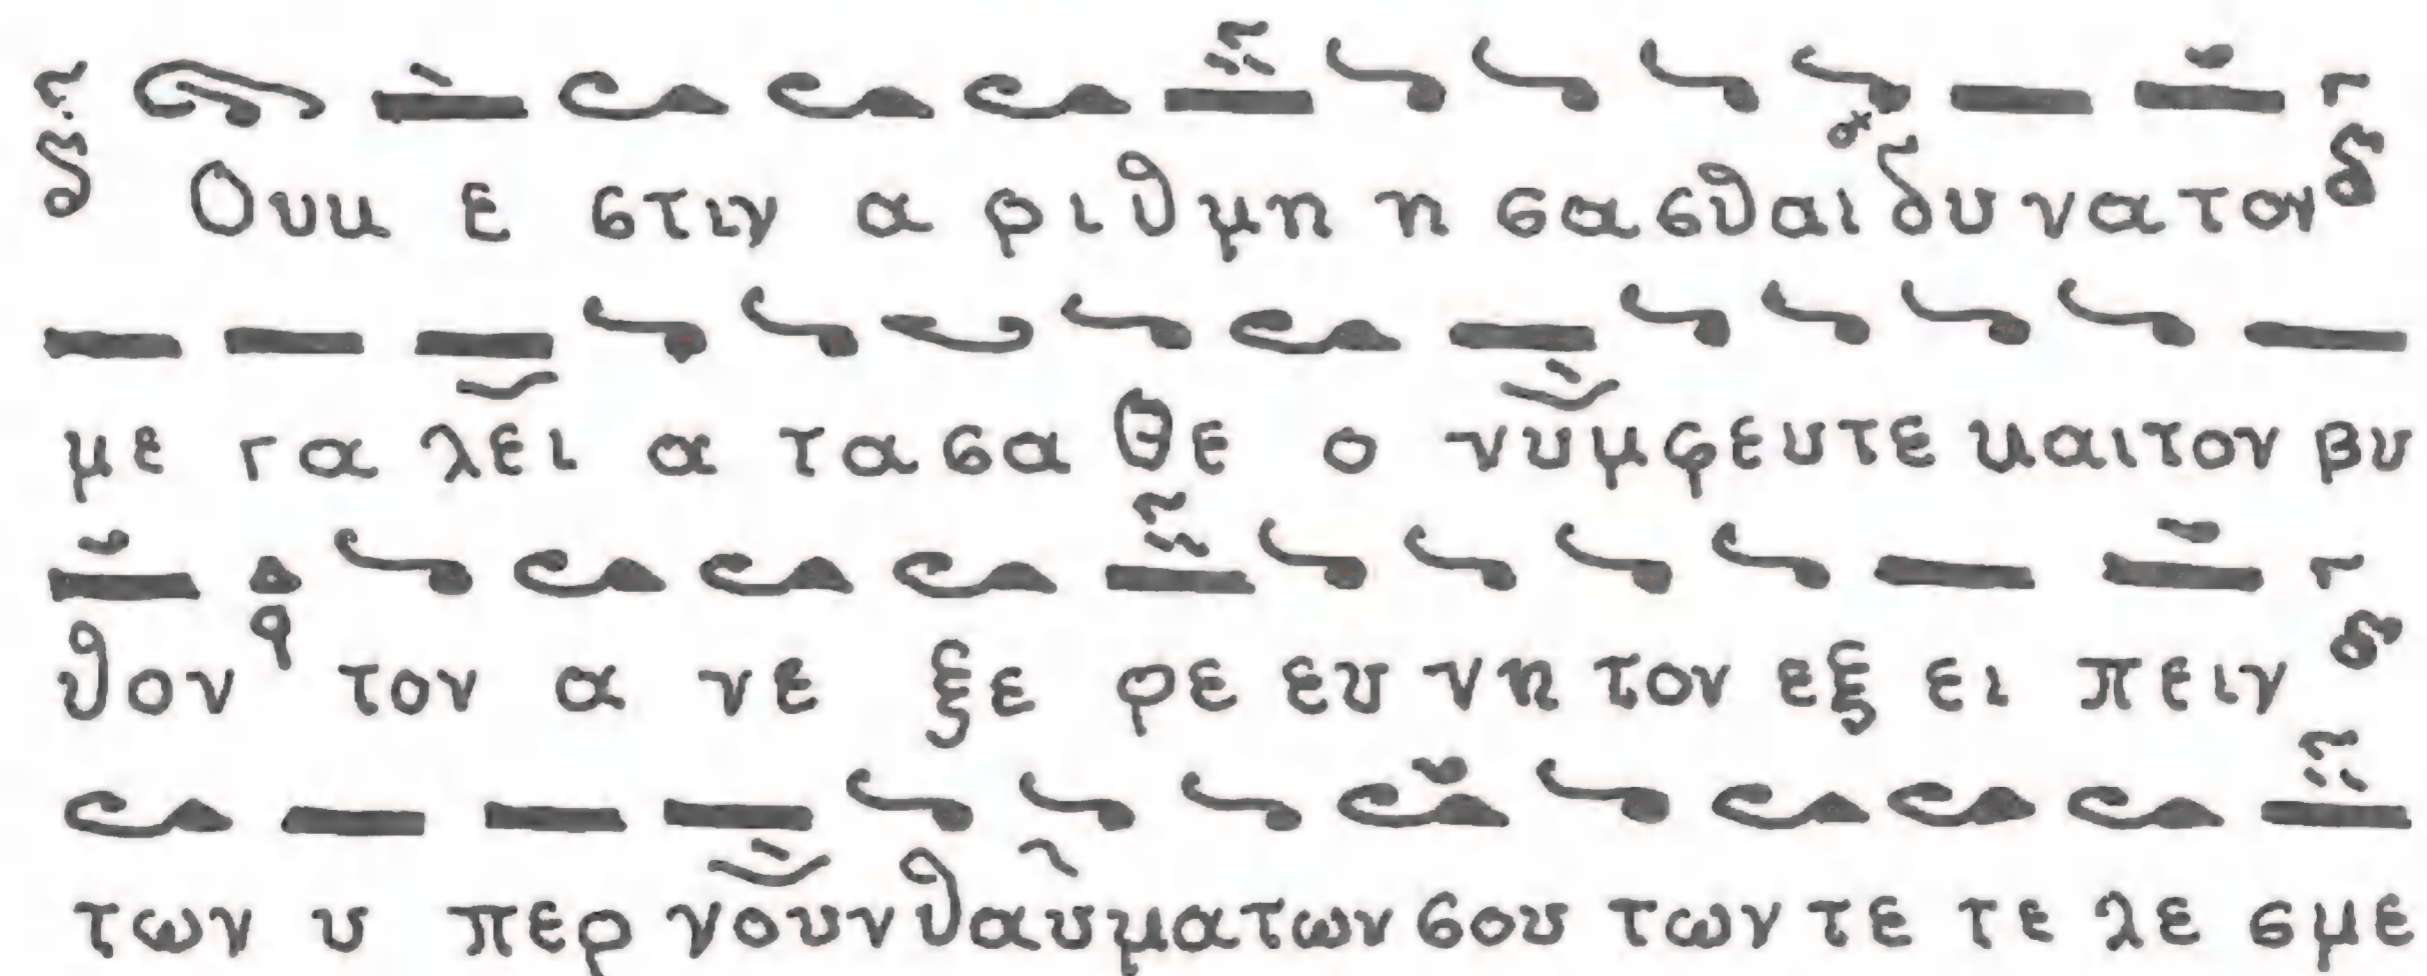 Ουκ ε στιν α ρι θμη η σα σθαι δυ να τον
με γα λει α τα σα Θε ο νυμ φευ τε και τον βυ
θον τον α νε ξε ρε ευ νη τον εξ ει πειν
των υ περ νουν θαυ μα των σου των τε τε λε σμε